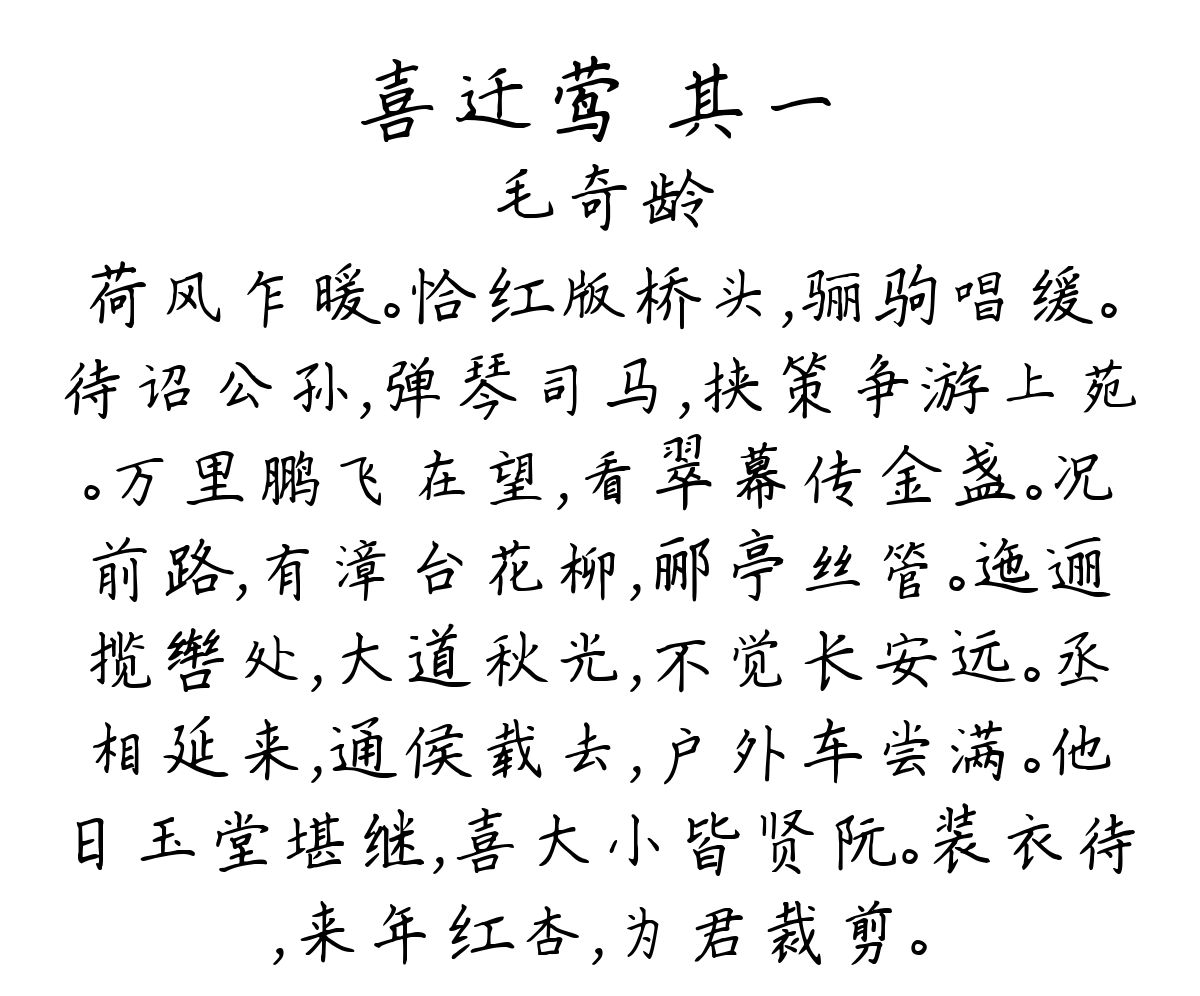 喜迁莺 其一
毛奇龄
荷风乍暖。恰红版桥头,骊驹唱缓。
待诏公孙,弹琴司马,挟策争游上苑
。万里鹏飞在望,看翠幕传金盏。况
前路,有漳台花柳,郦亭丝管。迤逦
揽辔处,大道秋光,不觉长安远。丞
相延来,通侯载去,户外车尝满。他
日玉堂堪继,喜大小皆贤阮。装衣待
,来年红杏,为君裁剪。